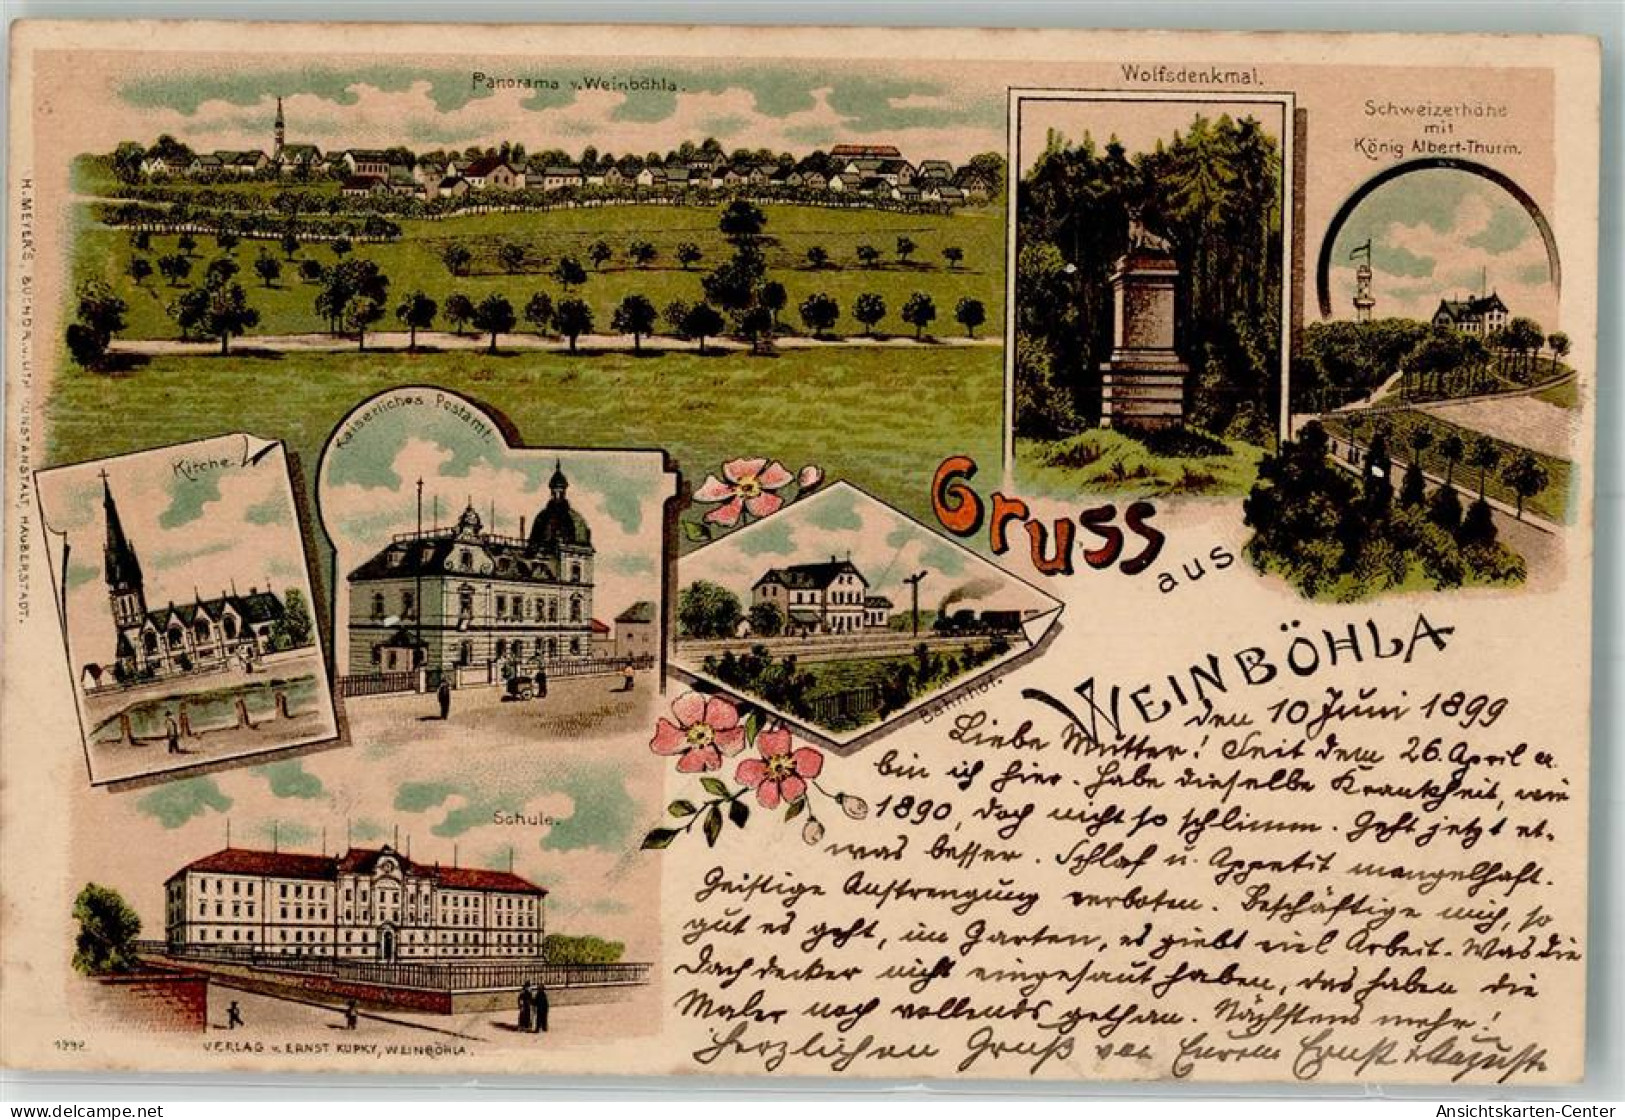 Panorama v. Weinböhla.
Wolfsdenkmal.
Schweizerhöhe
mit
König Albert-Thurm.
Kirche.
Kaiserliches Postamt.
Bahnhof.
Schule.
Gruss
aus
WEINBÖHLA
den 10 Juni 1899
Liebe Mutter! Seit dem 26. April cr.
bin ich hier. Habe dieselbe Krankheit, wie
1890, doch nicht so schlimm. Geht jetzt et-
was besser. Schlaf u. Appetit mangelhaft.
Geistige Anstrengung verboten. Beschäftige mich, so
gut es geht, im Garten, es giebt viel Arbeit. Was die
Dachdecker nicht eingesaut haben, das haben die
Maler noch vollends gethan. Nächstens mehr!
Herzlichen Gruß von Eurem Ernst & Auguste
H. MEYER'S BUCHDR. U. LITH. KUNSTANSTALT, HALBERSTADT.
1992
VERLAG v. ERNST KUPKY, WEINBÖHLA.
oldthing.de
Ansichtskarten-Center